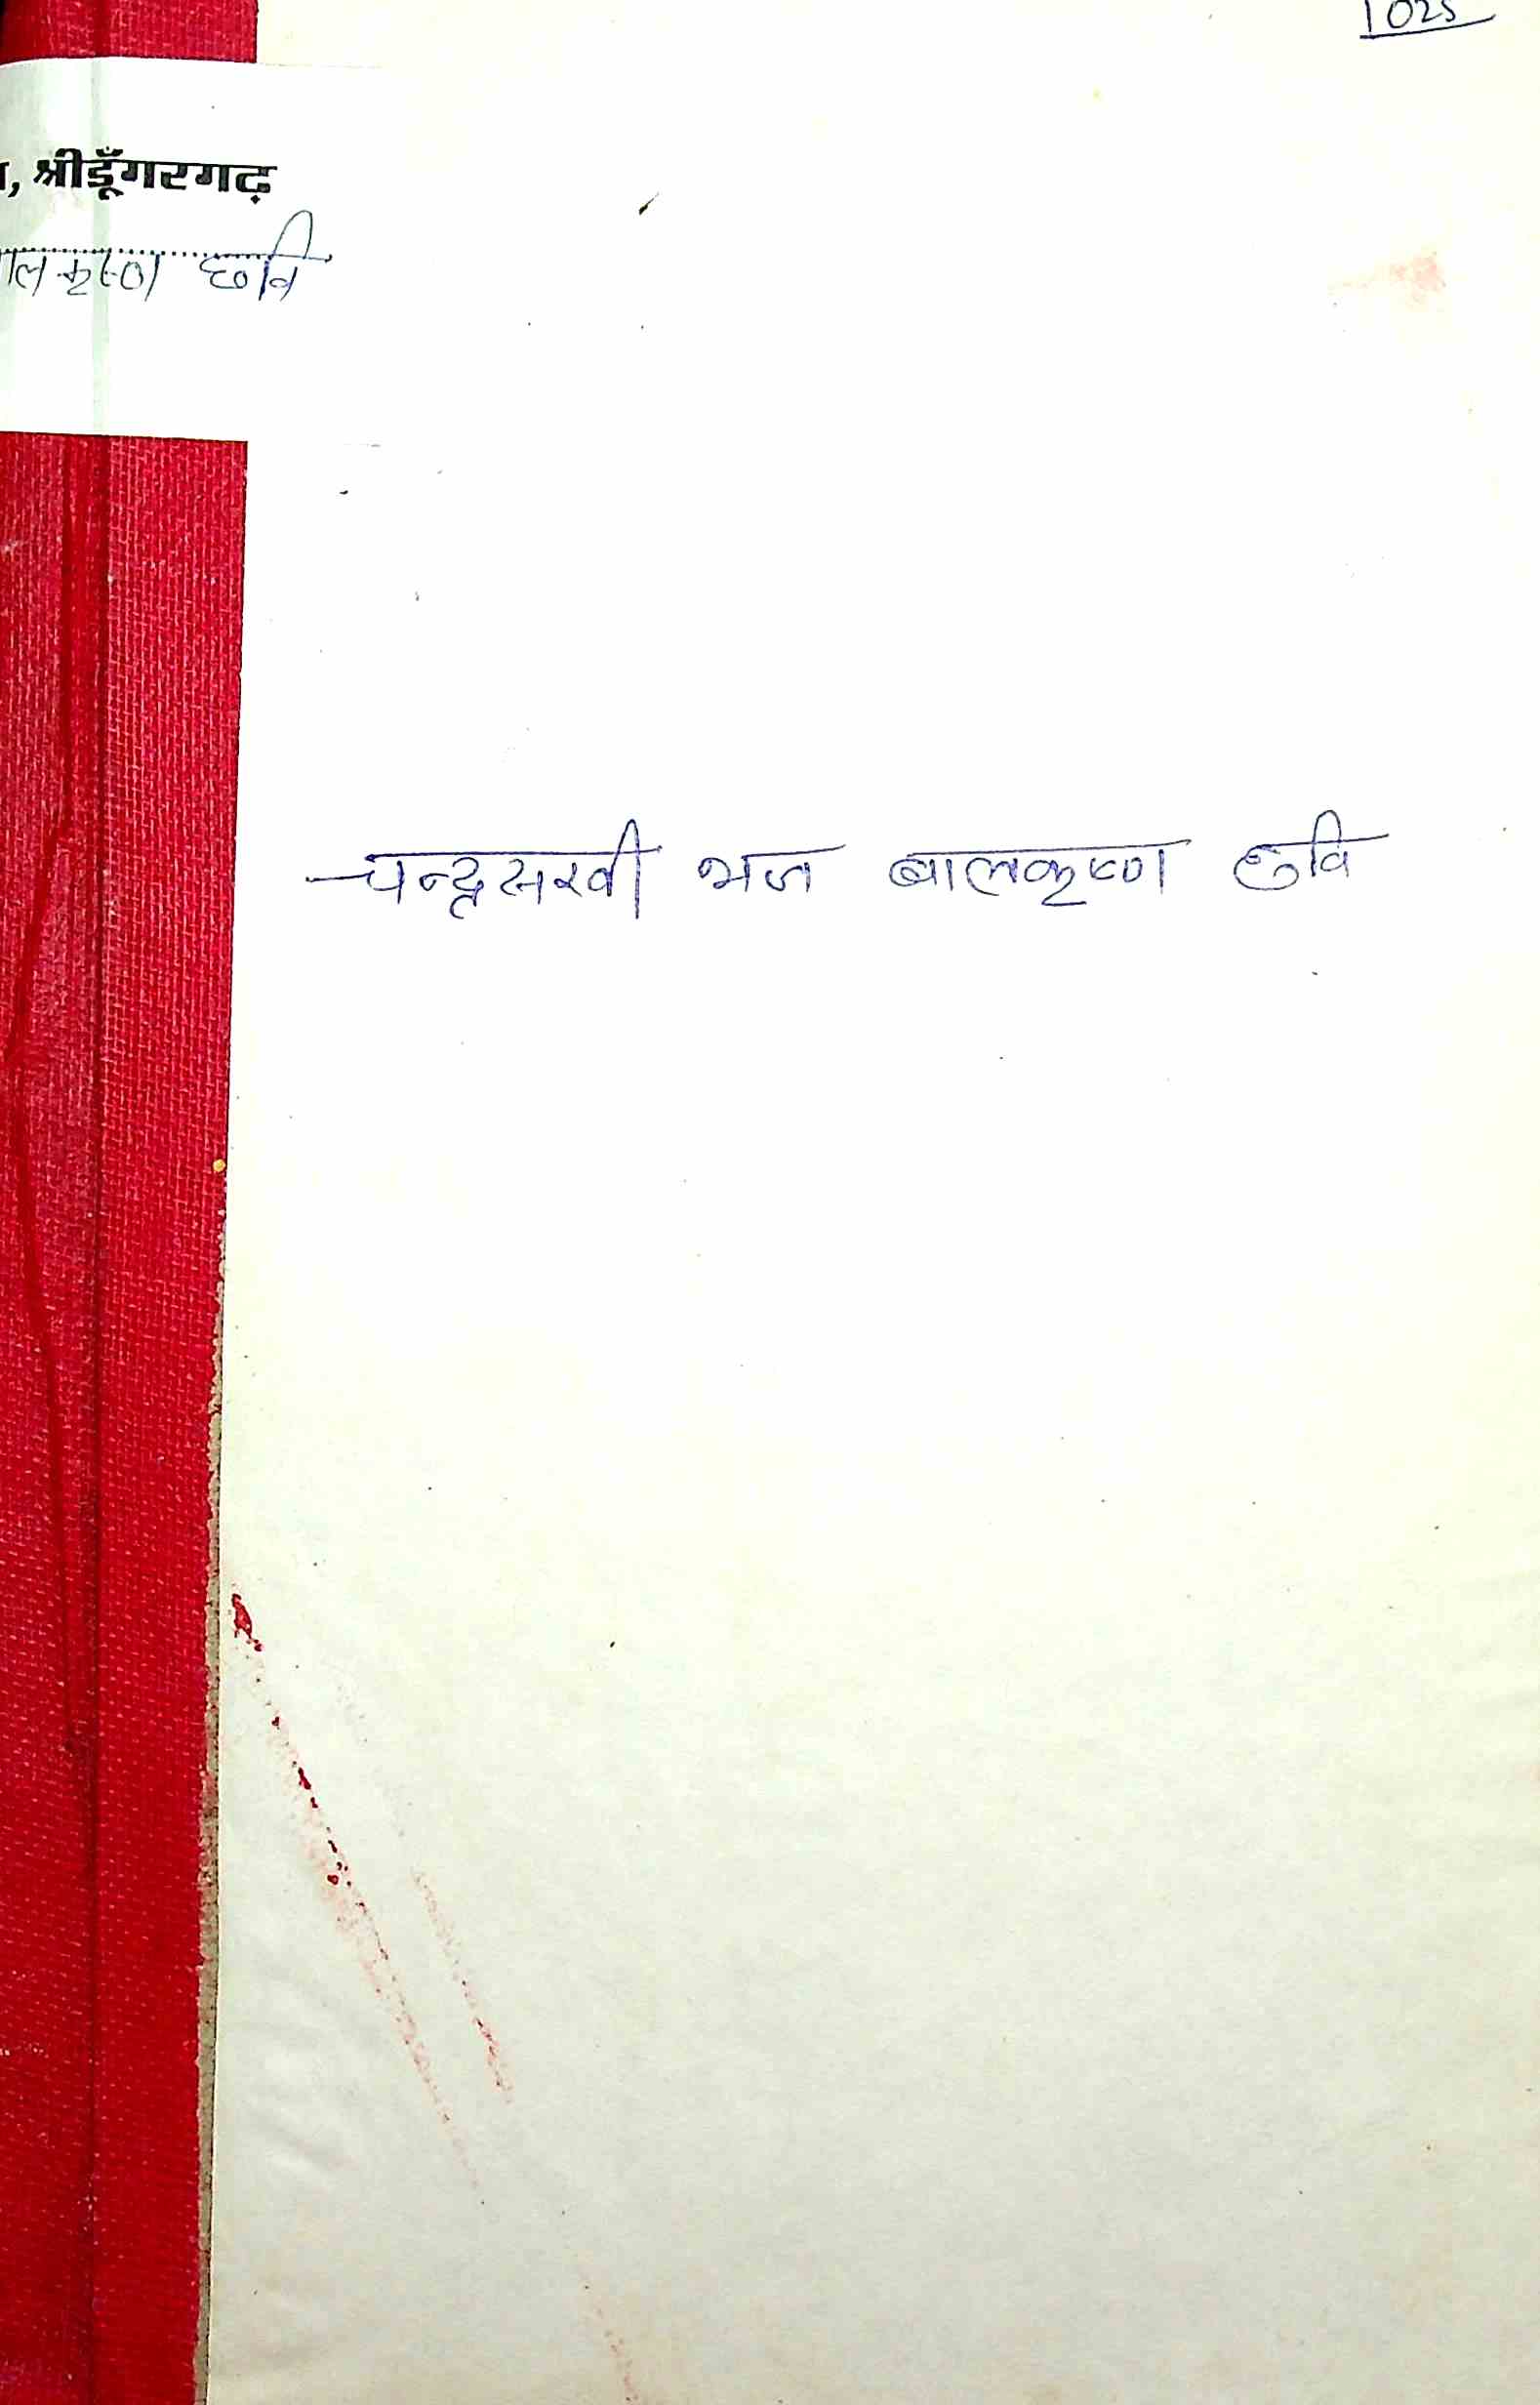 1025
, श्रीडूँगरगढ़
बालकृष्ण छवि
चन्द्रसखी भज बालकृष्ण छवि